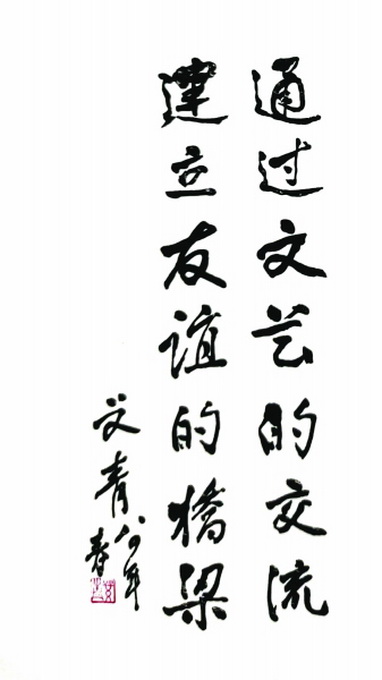 通过文艺的交流
建立友谊的橋梁
艾青
年
春